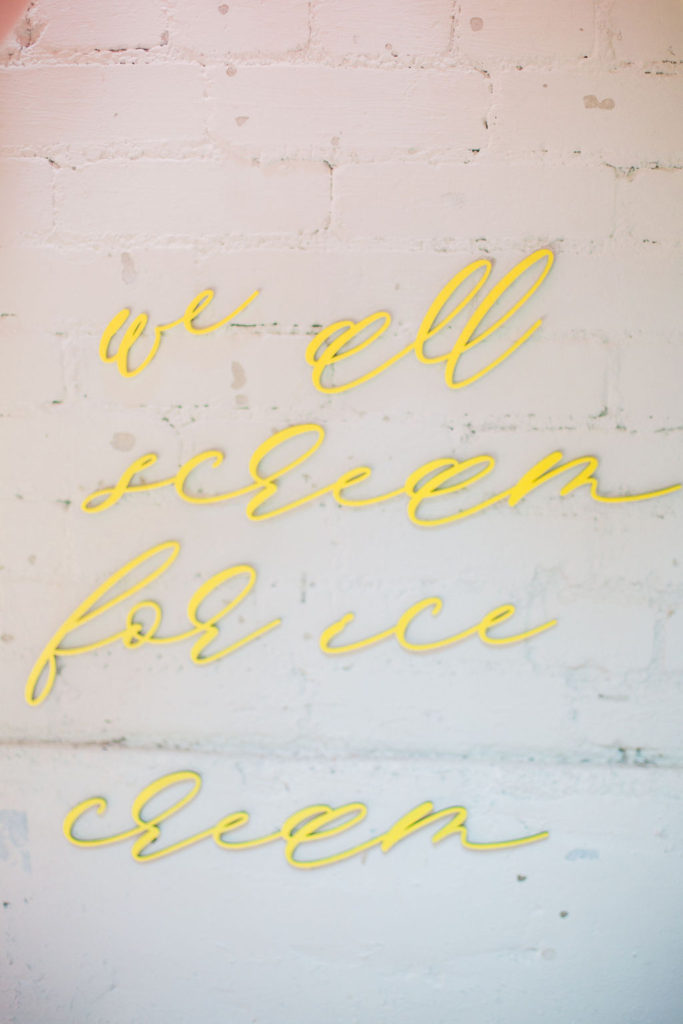 we all
scream
for ice
cream